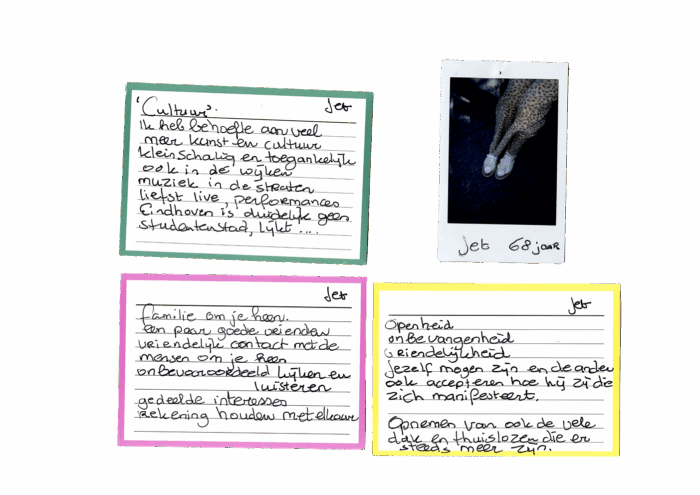 Jet
'Cultuur'.
ik heb behoefte aan veel
meer kunst en cultuur
kleinschalig en toegankelijk
ook in de wijken
muziek in de straten
liefst live, performances
Eindhoven is duidelijk geen
studentenstad, lijkt ....
Jet 68 jaar
Jet
familie om je heen.
een paar goede vrienden
vriendelijk contact met de
mensen om je heen
onbevooroordeeld kijken en
luisteren
gedeelde interesses
Rekening houden met elkaar
Jet
Openheid
onbevangenheid
Vriendelijkheid
jezelf mogen zijn en de ander
ook accepteren hoe hij zij die
zich manifesteert.
Opnemen van ook de vele
dak en thuislozen die er
steeds meer zijn.